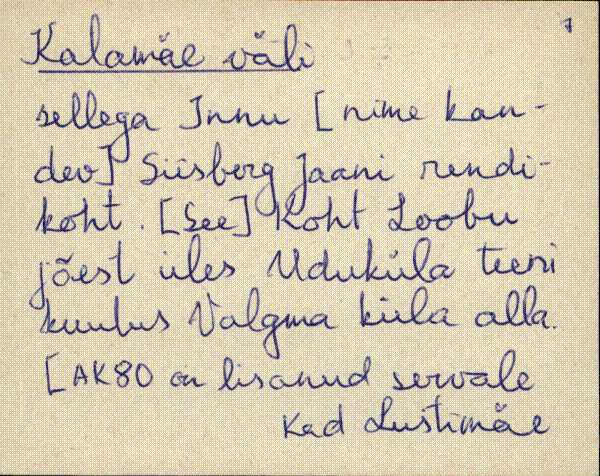 7
Kalamäe väli
sellega Innu [nime kan-
dev] Siisberg Jaani rendi-
koht. [See] Koht Loobu
jõest üles Uduküla teeni
kuulus Valgma küla alla.
[AK80 on lisanud servale
Kad Lustimäe